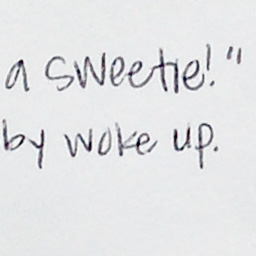 a sweetie!"
by woke up.